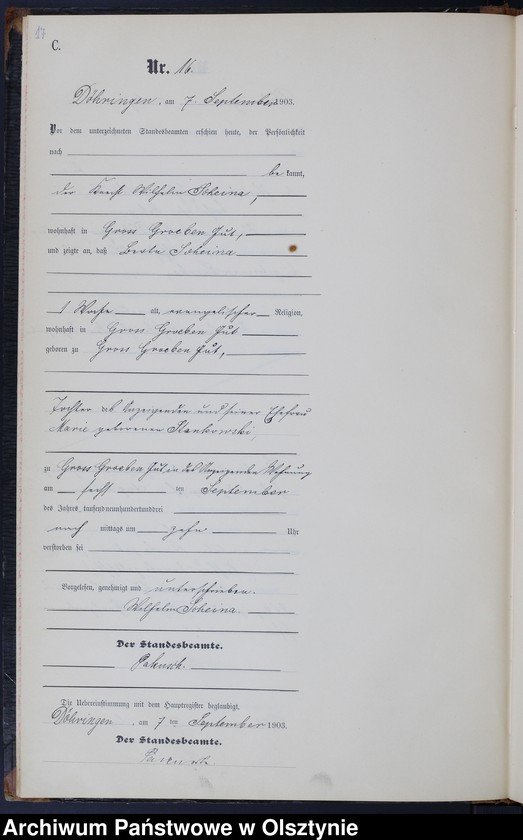 17
C.
Nr. 16.
Döhringen, am 7. September 1903.
Vor dem unterzeichneten Standesbeamten erschien heute, der Persönlichkeit
nach
be kannt,
der Knecht Wilhelm Scheina,
wohnhaft in Gross Groeben Gut,
und zeigte an, daß Berta Scheina
1 Woche alt, evangelischer Religion,
wohnhaft in Gross Groeben Gut
geboren zu Gross Groeben Gut,
Tochter des Anzeigenden und seiner Ehefrau
Marie geborenen Stankowski,
zu Gross Groeben Gut in des Anzeigenden Wohnung
am sechsten September
des Jahres tausendneunhundertunddrei
nach mittags um zehn Uhr
verstorben sei
Vorgelesen, genehmigt und unterschrieben.
Wilhelm Scheina
Der Standesbeamte.
Die Uebereinstimmung mit dem Hauptregister beglaubigt.
Döhringen, am 7 ten September 1903.
Der Standesbeamte.
Archiwum Państwowe w Olsztynie